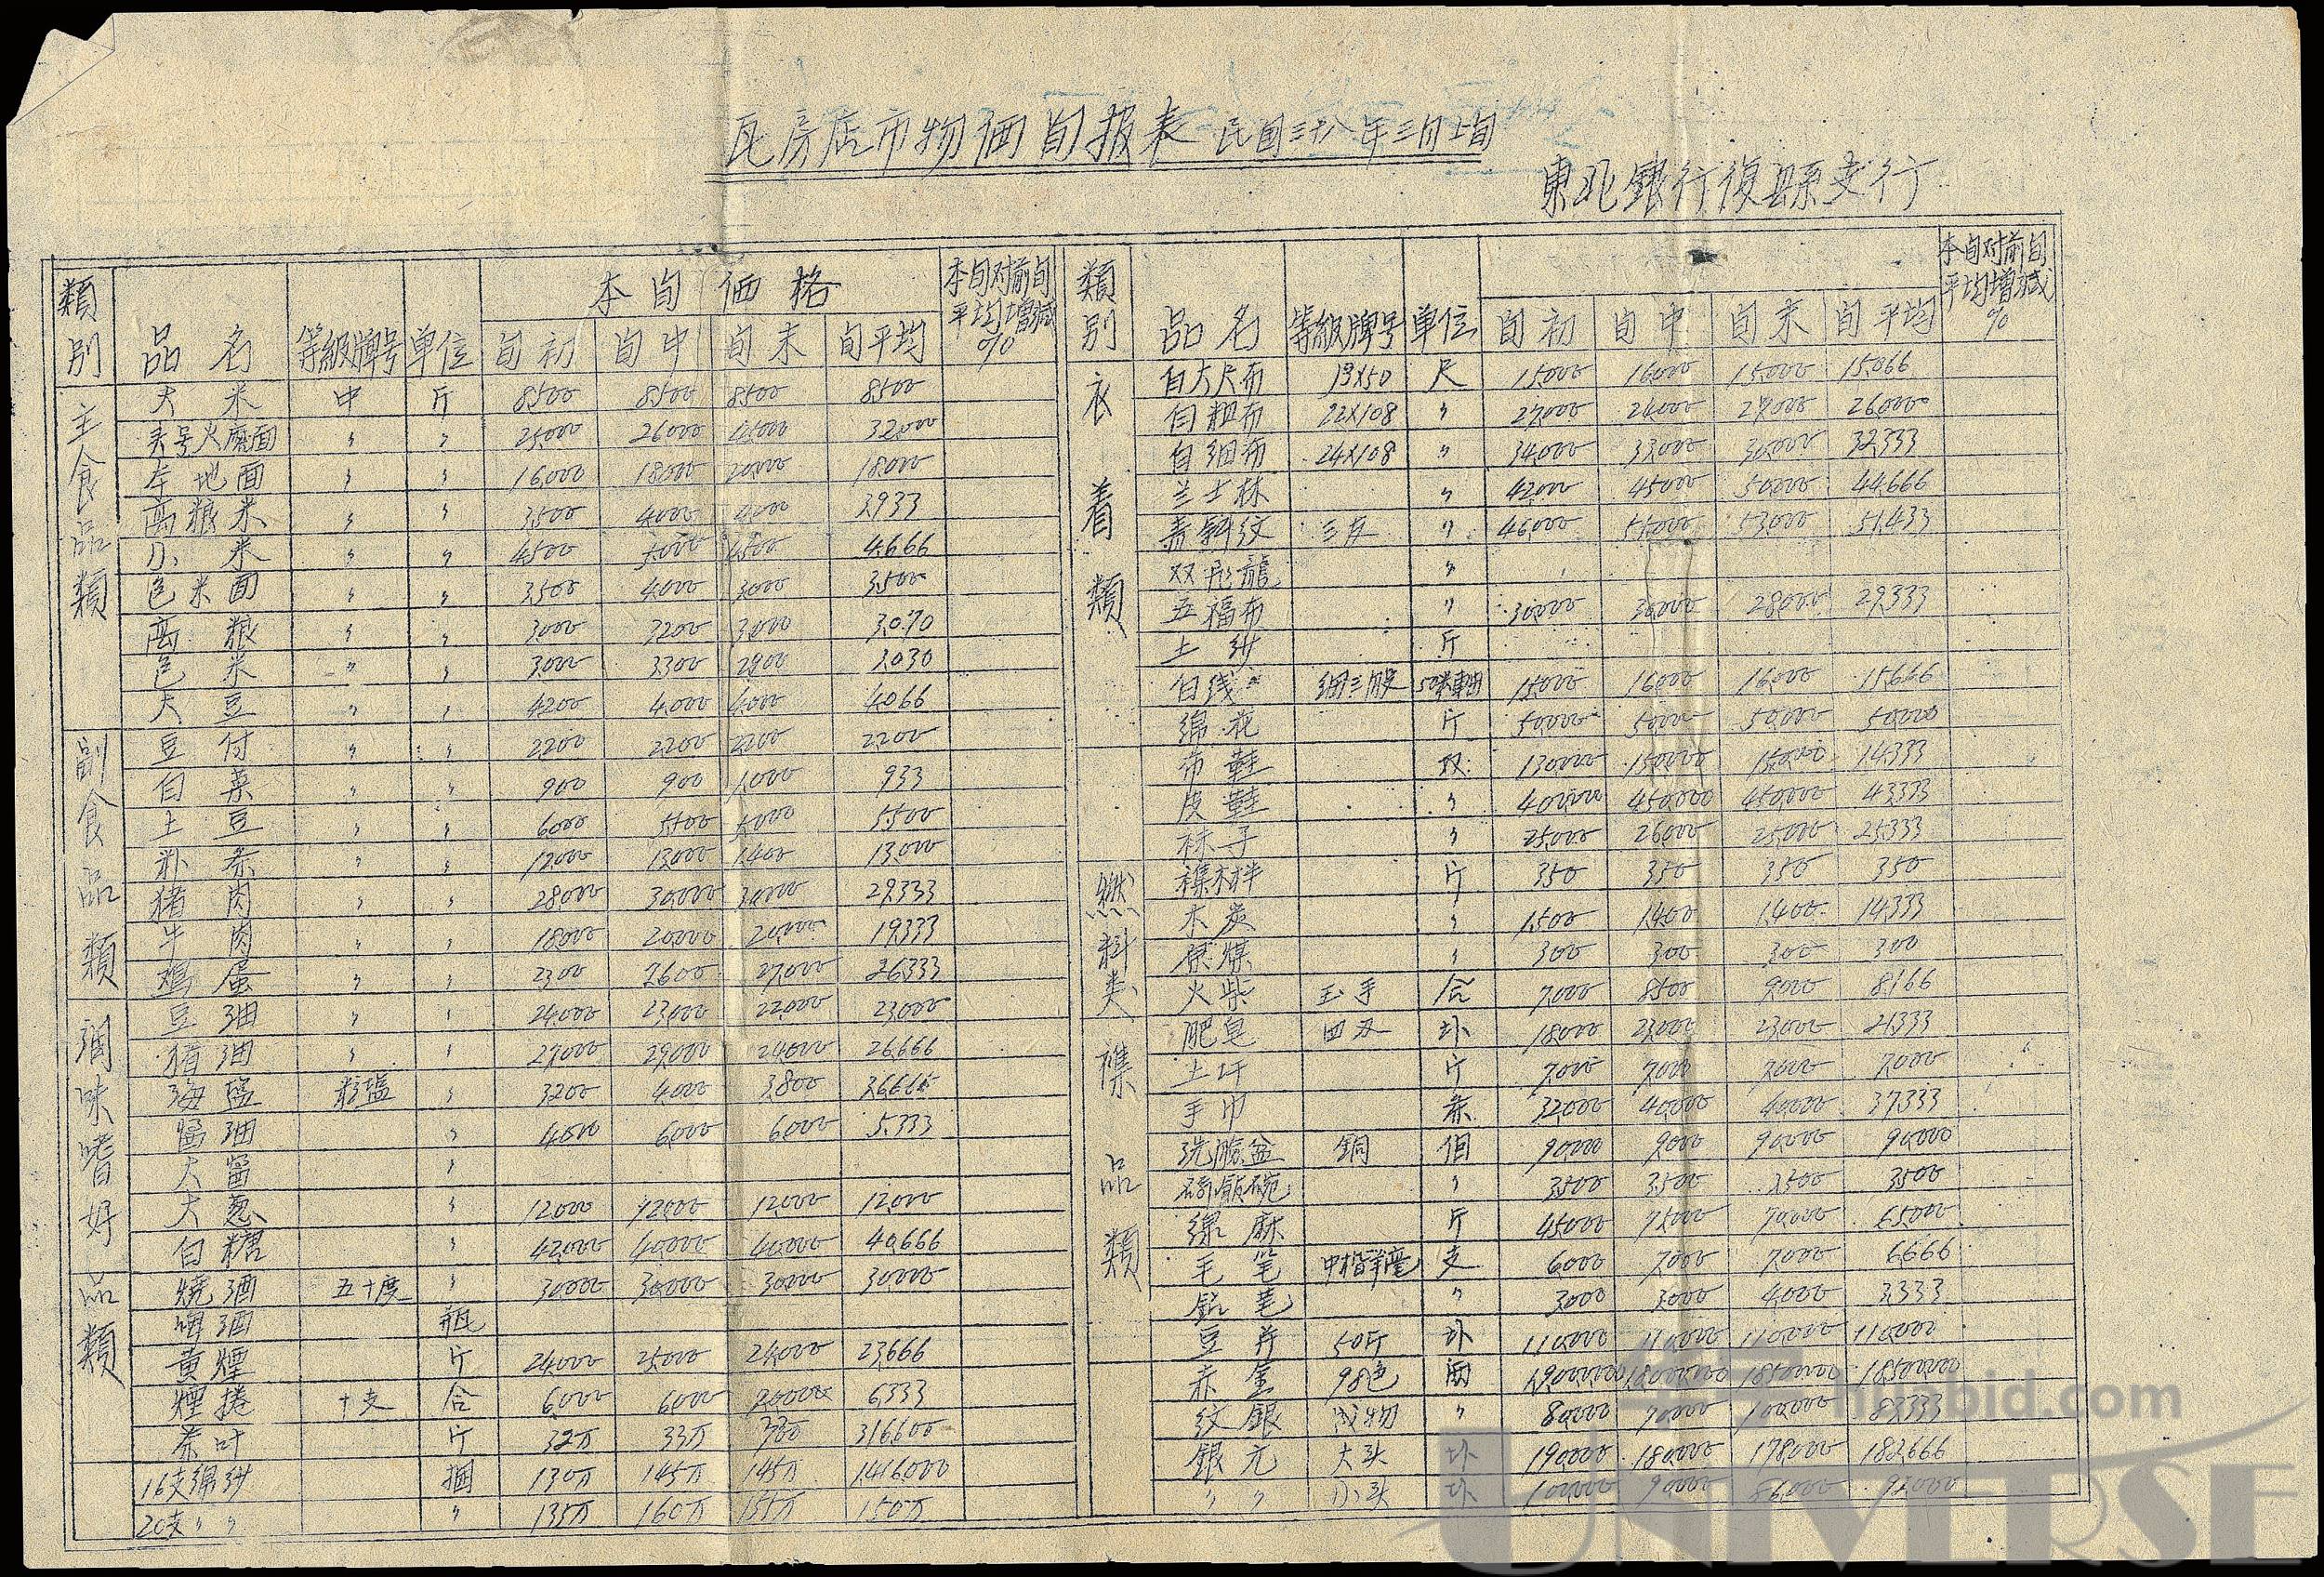 瓦房店市物価旬报表 民国三十八年三月上旬
東北銀行復縣支行
類別 品名 等級牌号 単位 本旬価格 旬初 旬中 旬末 旬平均 本旬对前旬平均增減%
主食品類
大米 中 斤 8500 8500 8500 8500
头号火磨面 〃 〃 25000 26000 32000
本地面 〃 〃 16,000 18000 20,000 18,000
高粮米 〃 〃 3500 4000 3,933
小米 〃 〃 4500 5000 4500 4,666
包米面 〃 〃 3,500 4,000 3,000 3,500
高粮 〃 〃 3,000 3200 3,000 3,070
包米 〃 〃 3,000 3300 2900 3,030
大豆 〃 〃 4200 4,000 4,000 4,066
副食品類
豆付 〃 〃 2200 2200 2200 2,200
白菜 〃 〃 900 900 1,000 933
土豆 〃 〃 6000 5500 5000 5,500
粉条 〃 〃 12000 13,000 1400 13,000
猪肉 〃 〃 28,000 30,000 30,000 29,333
牛肉 〃 〃 18,000 20,000 20,000 19,333
鸡蛋 〃 〃 2300 2600 27,000 26,333
調味嗜好品類
豆油 〃 〃 24,000 23,000 22,000 23,000
猪油 〃 〃 27,000 29,000 24,000 26,666
海塩 粒塩 〃 3,200 4,000 3,800 3,6665
醤油 〃 4,000 6,000 6,000 5,333
大醤 〃
大葱 〃 12,000 12,000 12,000 12,000
白糖 〃 42,000 40,000 40,000 40,666
焼酒 五十度 〃 30,000 30,000 30,000 30,000
啤酒 瓶
黄煙 斤 24,000 25,000 24,000 23,666
煙捲 十支 合 6,000 6,000 6,333
茶叶 斤 32万 33万 316,600
16支綿紗 捆 130万 145万 145万 1,416,000
20支〃〃 〃 135万 160万 155万 150万
類別 品名 等級牌号 単位 旬初 旬中 旬末 旬平均 本旬对前旬平均增減%
衣着類
白大尺布 19X50 尺 15,000 16,000 15,000 15,066
白粗布 22X108 〃 27,000 24,000 27,000 26,000
白細布 24X108 〃 34,000 33,000 30,000 32,333
兰士林 〃 42,000 45,000 50,000 44,666
青斜纹 〃 46,000 55,000 53,000 51,433
双彤龍 〃
五福布 〃 30,000 30,000 28,000 29,333
土紗 斤
白线 細三股 15,000 16,000 16,000 15,666
綿花 斤 50,000 50,000 50,000 50,000
布鞋 双 130,000 150,000 150,000 14,333
皮鞋 〃 400,000 450,000 450,000 43,333
袜子 〃 25,000 26,000 25,000 25,333
燃料类
襍木柈 斤 350 350 350 350
木炭 〃 1,500 1,400 1,400 14,333
原煤 〃 300 300 300 300
火柴 玉手 合 7,000 8,500 9,000 8,166
襍品類
肥皂 块 18,000 23,000 23,000 21,333
土 斤 7,000 7,000 7,000 7,000
手巾 条 32,000 40,000 40,000 37,333
洗臉盆 銅 個 90,000 9,000 90,000 90,000
飯碗 〃 3,500 3,500 3,500 3,500
線麻 斤 45,000 75,000 70,000 65,000
毛笔 中楷羊毫 支 6,000 7,000 7,000 6,666
鉛笔 〃 3,000 3,000 4,000 3,333
豆并 50斤 块 110,000 110,000 110,000 110,000
赤金 98色 両 1,900,000 1,800,000 1,850,000 1,850,000
纹銀 〃 80,000 70,000 100,000 83,333
銀元 大头 块 190,000 180,000 178,000 182,666
〃〃 小头 块 100,000 90,000 86,000 92,000
hpabid.com
UNIVERSE